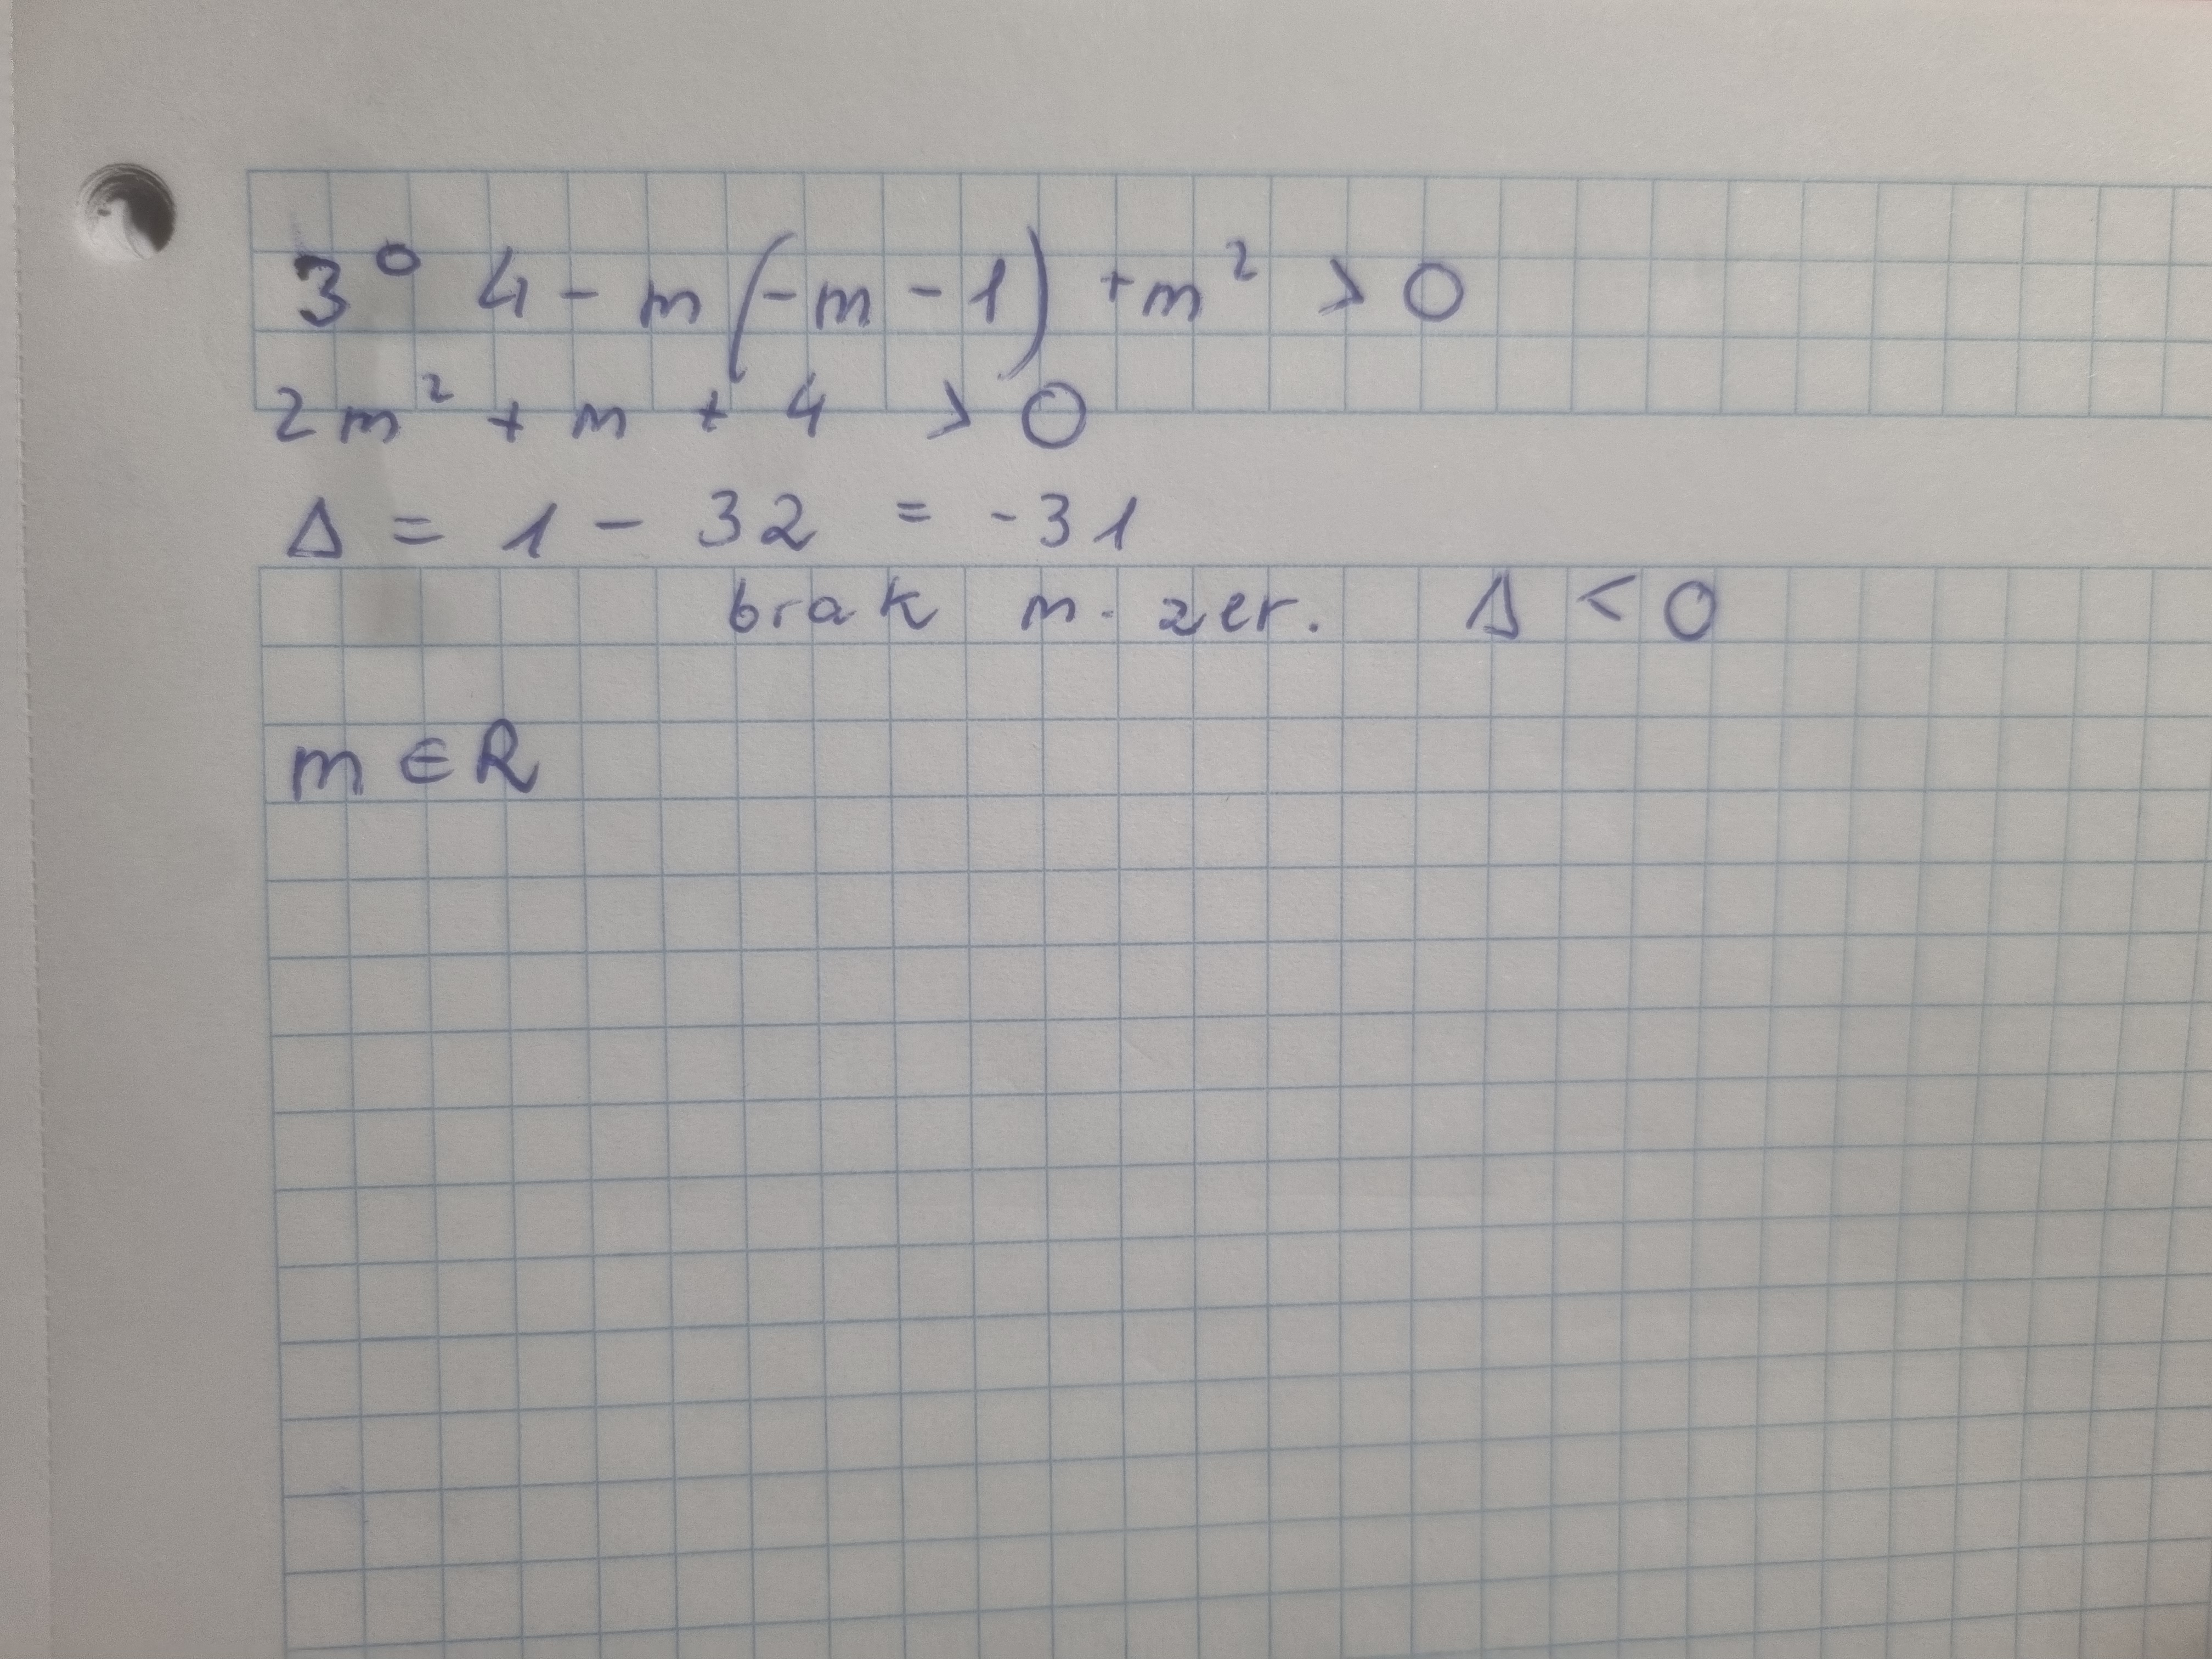 3° 4 - m(-m - 1) + m² > 0
2m² + m + 4 > 0
Δ = 1 - 32 = -31
brak m. zer. Δ < 0
m ∈ R